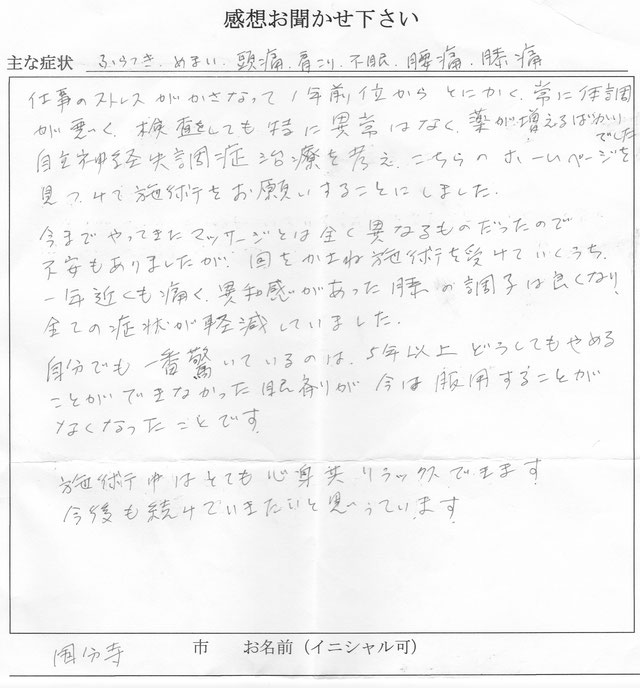 感想お聞かせ下さい
主な症状 ふらつき、めまい、頭痛、肩こり、不眠、腰痛、膝痛
仕事のストレスがかさなって1年前位からとにかく、常に体調
が悪く、検査をしても特に異常はなく、薬が増えるばかり
でした
自立神経失調症治療を考え、こちらのホームページを
見つけて施術をお願いすることにしました。
今までやってきたマッサージとは全く異なるものだったので
不安もありましたが、回をかさね施術を受けていくうち、
一年近くも痛く、異和感があった膝の調子は良くなり、
全ての症状が軽減していました。
自分でも一番驚いているのは、5年以上どうしてもやめる
ことができなかった眠剤が今は服用することが
なくなったことです
施術中はとても心身共リラックスできます
今後も続けていきたいと思っています
国分寺 市 お名前（イニシャル可）